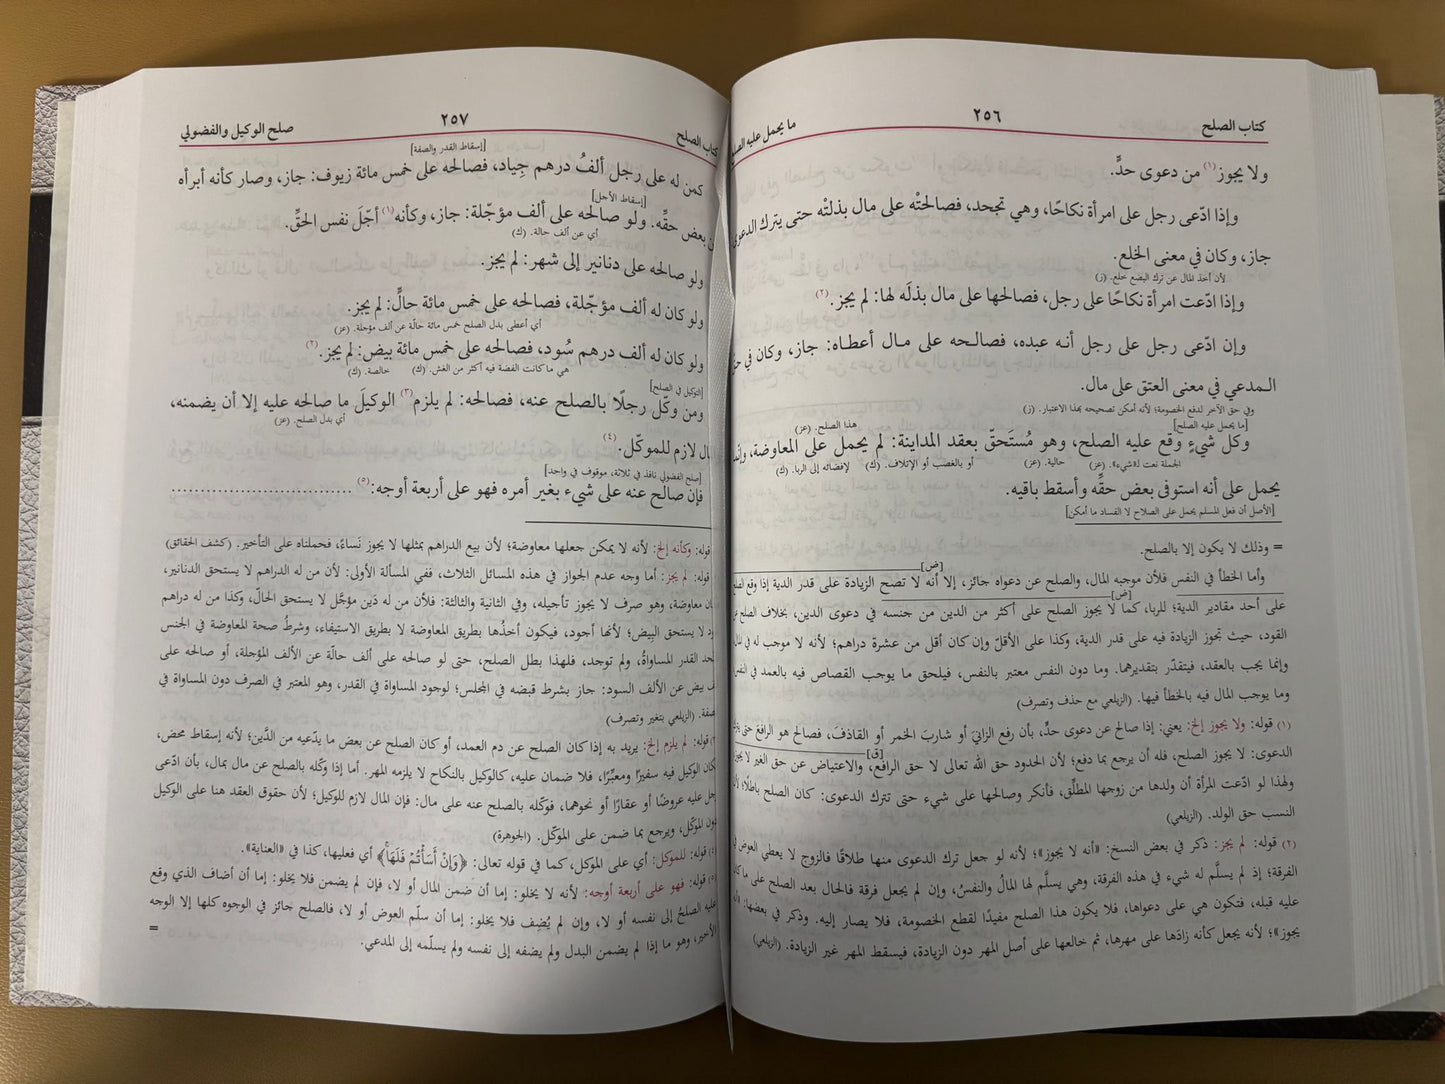 كتاب الصلح
٢٥٦
ما يحمل عليه الصلح
ولا يجوز(١) من دعوى حدٍّ.
وإذا ادّعى رجل على امرأة نكاحًا، وهي تجحد، فصالحتْه على مال بذلتْه حتى يترك الدعوى
جاز، وكان في معنى الخلع.
لأن أخذ المال عن ترك البضع خلع. (ز)
وإذا ادّعت امرأة نكاحًا على رجل، فصالحها على مال بذلَه لها: لم يجز.(٢)
وإن ادّعى رجل على رجل أنه عبده، فصالحه على مال أعطاه: جاز، وكان في حق
المدعي في معنى العتق على مال.
وفي حق الآخر لدفع الخصومة؛ لأنه أمكن تصحيحه بهذا الاعتبار. (ز)
[ما يحمل عليه الصلح]
هذا الصلح. (عز)
وكل شيءٍ وقع عليه الصلح، وهو مُستَحقّ بعقد المداينة: لم يحمل على المعاوضة، وإنما
الجملة نعت لـ«شيء». (عز)
حالية. (عز)
أو بالغصب أو الإتلاف. (ك)
لإفضائه إلى الربا. (ك)
يحمل على أنه استوفى بعض حقّه وأسقط باقيه.
[الأصل أن فعل المسلم يحمل على الصلاح لا الفساد ما أمكن]
= وذلك لا يكون إلا بالصلح.
وأما الخطأ في النفس فلأن موجبه المال، والصلح عن دعواه جائز، إلا أنه لا تصح الزيادة على قدر الدية إذا وقع الصلح
[ض]
على أحد مقادير الدية؛ للربا، كما لا يجوز الصلح على أكثر من الدين من جنسه في دعوى الدين، بخلاف الصلح عن
[ض]
القود، حيث تجوز الزيادة فيه على قدر الدية، وكذا على الأقلّ وإن كان أقل من عشرة دراهم؛ لأنه لا موجب له في المال
وإنما يجب بالعقد، فيتقدّر بتقديرهما. وما دون النفس معتبر بالنفس، فيلحق ما يوجب القصاص فيه بالعمد في النفس
وما يوجب المال فيه بالخطأ فيها. (الزيلعي مع حذف وتصرف)
(١) قوله: ولا يجوز إلخ: يعني: إذا صالح عن دعوى حدٍّ، بأن رفع الزانيَ أو شاربَ الخمر أو القاذفَ، فصالح هو الرافعَ حتى يترك
الدعوى: لا يجوز الصلح، فله أن يرجع بما دفع؛ لأن الحدود حق الله تعالى لا حق الرافع، والاعتياض عن حق الغير لا يجوز
[ق]
ولهذا لو ادّعت المرأة أن ولدها من زوجها المطلِّق، فأنكر وصالحها على شيء حتى تترك الدعوى: كان الصلح باطلًا؛ لأن
النسب حق الولد. (الزيلعي)
(٢) قوله: لم يجز: ذكر في بعض النسخ: «أنه لا يجوز»؛ لأنه لو جعل ترك الدعوى منها طلاقًا فالزوج لا يعطي العوض في
الفرقة؛ إذ لم يسلَّم له شيء في هذه الفرقة، وهي يسلَّم لها المالُ والنفسُ، وإن لم يجعل فرقة فالحال بعد الصلح على ما كان
عليه قبله، فتكون هي على دعواها، فلا يكون هذا الصلح مفيدًا لقطع الخصومة، فلا يصار إليه. وذكر في بعضها: «أنه
يجوز»؛ لأنه يجعل كأنه زادَها على مهرها، ثم خالعها على أصل المهر دون الزيادة، فيسقط المهر غير الزيادة. (الزيلعي)
كتاب الصلح
٢٥٧
صلح الوكيل والفضولي
[إسقاط القدر والصفة]
كمن له على رجل ألفُ درهم جِياد، فصالحه على خمس مائة زيوف: جاز، وصار كأنه أبرأه
[إسقاط الأجل]
من بعض حقّه. ولو صالحه على ألف مؤجّلة: جاز، وكأنه(١) أجّلَ نفس الحقِّ.
أي عن ألف حالة. (ك)
ولو صالحه على دنانير إلى شهر: لم يجز.
ولو كان له ألف مؤجّلة، فصالحه على خمس مائة حالٍّ: لم يجز.
أي أعطى بدل الصلح خمس مائة حالّة عن ألف مؤجلة. (عز)
ولو كان له ألف درهم سُود، فصالحه على خمس مائة بيض: لم يجز.(٢)
هي ما كانت الفضة فيه أكثر من الغش. (ك)
خالصة. (ك)
[التوكيل في الصلح]
ومن وكّل رجلًا بالصلح عنه، فصالحه: لم يلزم(٣) الوكيلَ ما صالحه عليه إلا أن يضمنه،
أي بدل الصلح. (عز)
المال لازم للموكّل.(٤)
[صلح الفضولي نافذ في ثلاثة، موقوف في واحد]
فإن صالح عنه على شيء بغير أمره فهو على أربعة أوجه:(٥) ................................
قوله: وكأنه إلخ: لأنه لا يمكن جعلها معاوضة؛ لأن بيع الدراهم بمثلها لا يجوز نَساءً، فحملناه على التأخير. (كشف الحقائق)
قوله: لم يجز: أما وجه عدم الجواز في هذه المسائل الثلاث، ففي المسألة الأولى: لأن من له الدراهم لا يستحق الدنانير،
معاوضة، وهو صرف لا يجوز تأجيله، وفي الثانية والثالثة: فلأن من له دَين مؤجَّل لا يستحق الحالّ، وكذا من له دراهم
لا يستحق البِيض؛ لأنها أجود، فيكون أخذُها بطريق المعاوضة لا بطريق الاستيفاء، وشرطُ صحة المعاوضة في الجنس
القدر المساواةُ، ولم توجد، فلهذا بطل الصلح، حتى لو صالحه على ألف حالّة عن الألف المؤجلة، أو صالحه على
بيض عن الألف السود: جاز بشرط قبضه في المجلس؛ لوجود المساواة في القدر، وهو المعتبر في الصرف دون المساواة في
الصفة. (الزيلعي بتغير وتصرف)
قوله: لم يلزم إلخ: يريد به إذا كان الصلح عن دم العمد، أو كان الصلح عن بعض ما يدّعيه من الدَّين؛ لأنه إسقاط محض،
فكان الوكيل فيه سفيرًا ومعبِّرًا، فلا ضمان عليه، كالوكيل بالنكاح لا يلزمه المهر. أما إذا وكّله بالصلح عن مال بمال، بأن ادّعى
رجل عليه عروضًا أو عقارًا أو نحوهما، فوكّله بالصلح عنه على مال: فإن المال لازم للوكيل؛ لأن حقوق العقد هنا على الوكيل
دون الموكّل، ويرجع بما ضمن على الموكّل. (الجوهرة)
(٤) قوله: للموكل: أي على الموكل، كما في قوله تعالى: ﴿وَإِنْ أَسَأْتُمْ فَلَهَا﴾ أي فعليها، كذا في «العناية».
(٥) قوله: فهو على أربعة أوجه: لأنه لا يخلو: إما أن ضمن المال أو لا، فإن لم يضمن فلا يخلو: إما أن أضاف الذي وقع
عليه الصلحُ إلى نفسه أو لا، وإن لم يُضِف فلا يخلو: إما أن سلّم العوض أو لا، فالصلح جائز في الوجوه كلها إلا الوجه
الأخير، وهو ما إذا لم يضمن البدل ولم يضفه إلى نفسه ولم يسلّمه إلى المدعي.
=